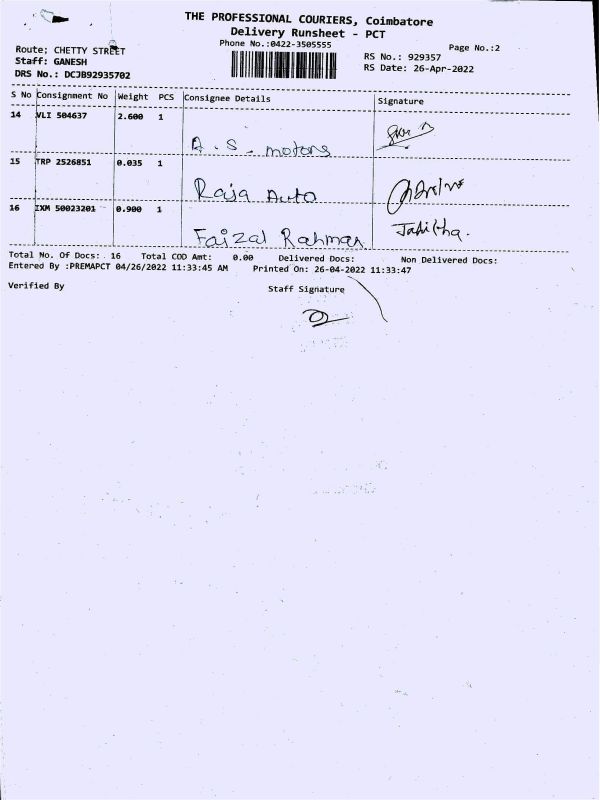 THE PROFESSIONAL COURIERS, Coimbatore
Delivery Runsheet - PCT
Phone No.:0422-3505555
Page No.:2
Route; CHETTY STREET
Staff: GANESH
DRS No.: DCJB92935702
RS No.: 929357
RS Date: 26-Apr-2022
S No Consignment No Weight PCS Consignee Details Signature
14 VLI 504637 2.600 1
A . S . motors
15 TRP 2526851 0.035 1
Raja Auto
16 IXM 50023201 0.900 1
Faizal Rahman
Total No. Of Docs: 16 Total COD Amt: 0.00 Delivered Docs: Non Delivered Docs:
Entered By :PREMAPCT 04/26/2022 11:33:45 AM Printed On: 26-04-2022 11:33:47
Verified By Staff Signature